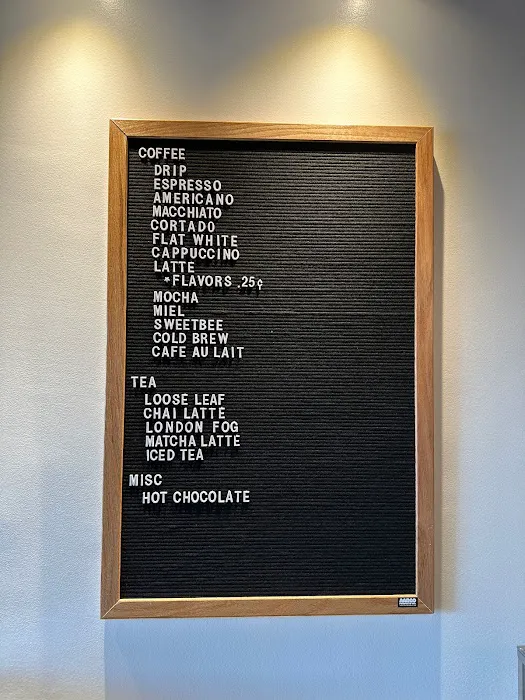 COFFEE
DRIP
ESPRESSO
AMERICANO
MACCHIATO
CORTADO
FLAT WHITE
CAPPUCCINO
LATTE
*FLAVORS .25¢
MOCHA
MIEL
SWEETBEE
COLD BREW
CAFE AU LAIT
TEA
LOOSE LEAF
CHAI LATTE
LONDON FOG
MATCHA LATTE
ICED TEA
MISC
HOT CHOCOLATE